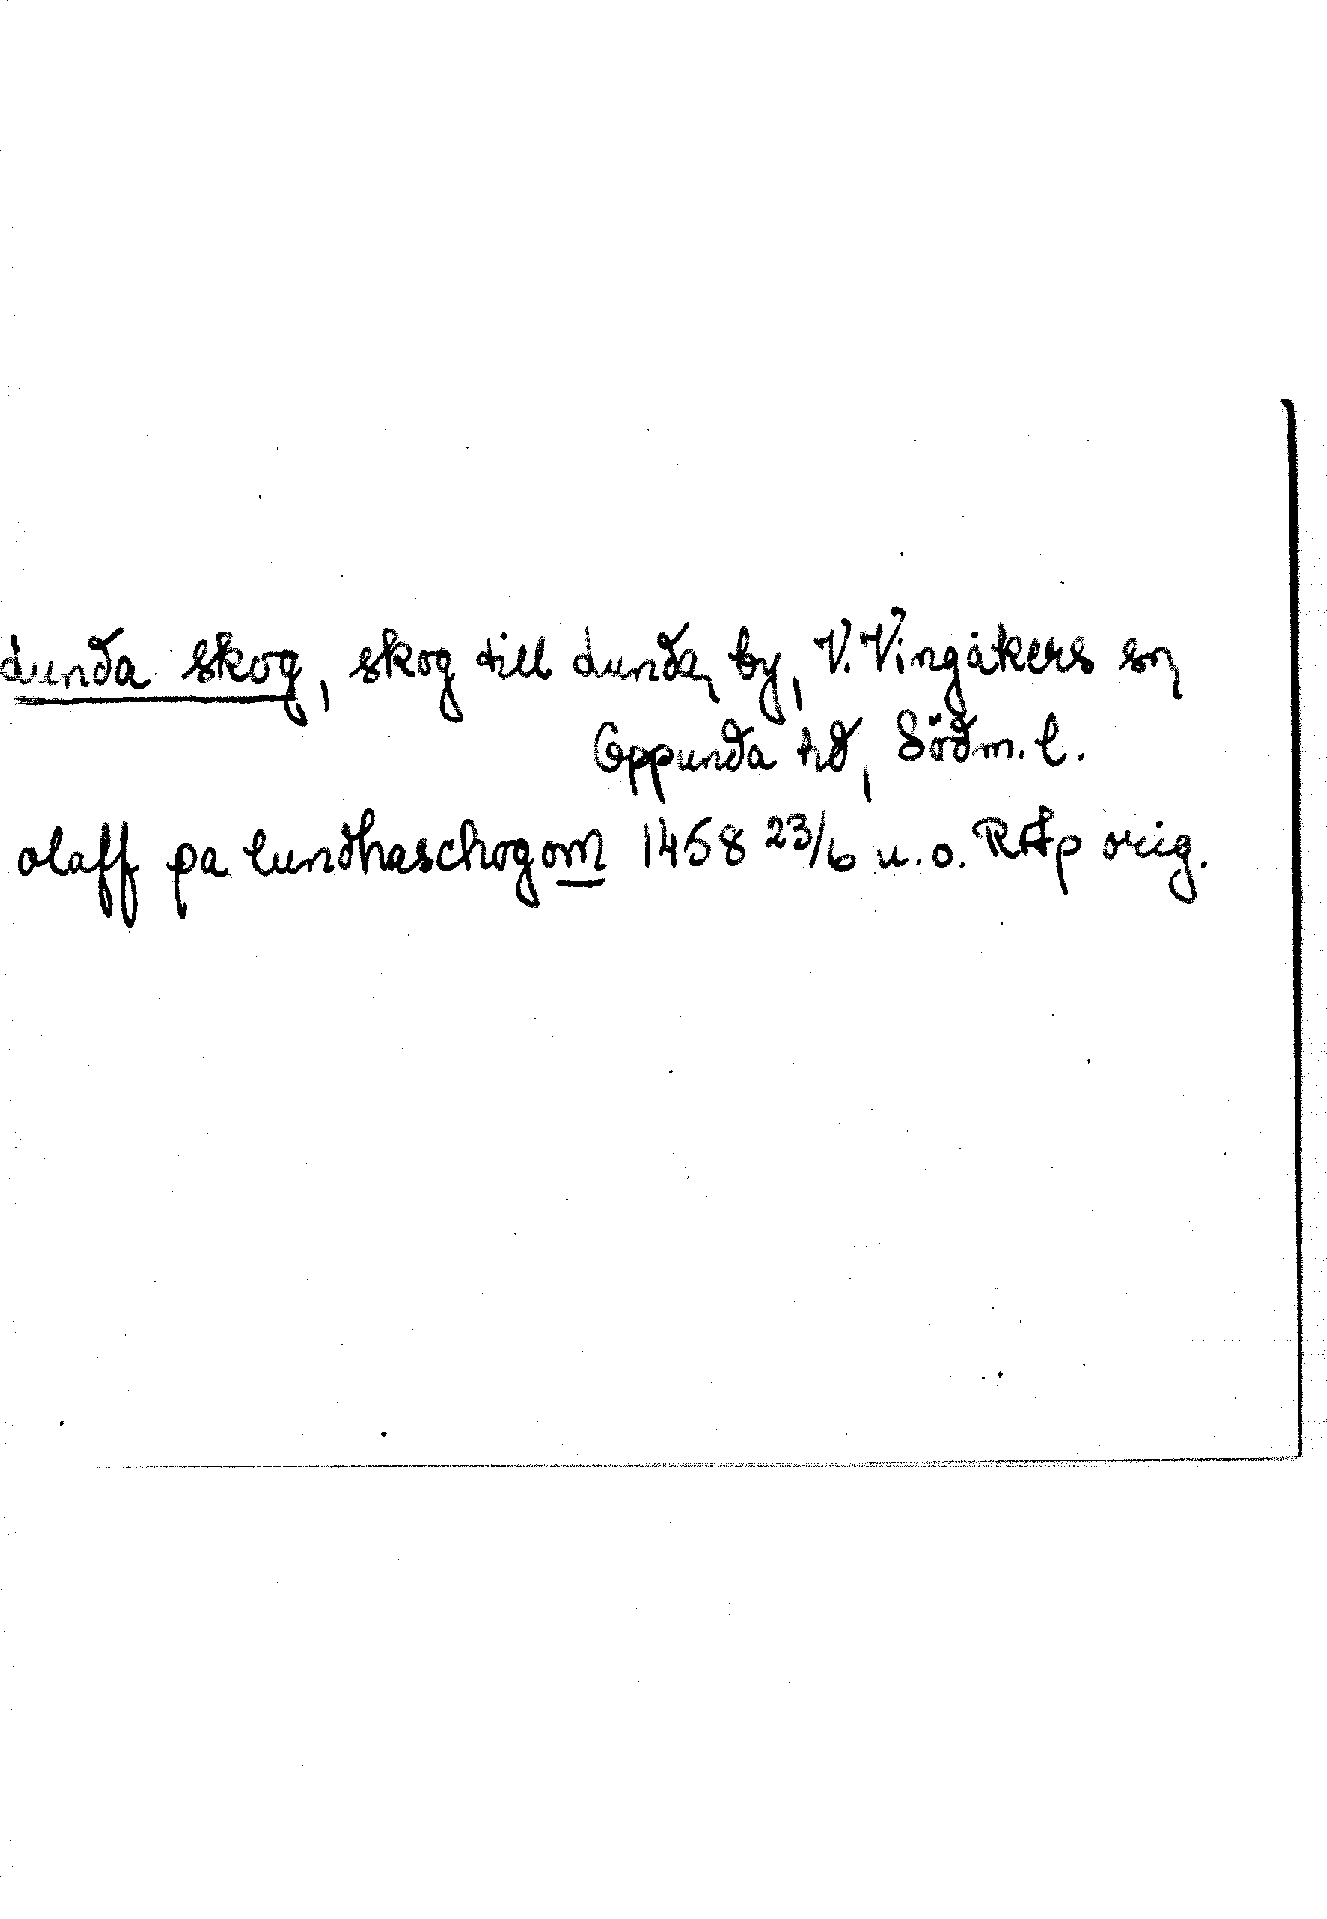 Lunda skog, skog till Lunda by, V. Vingåkers sn
Oppunda hd, Södm. l.
olaff pa lundhaschogom 1458 23/6 u. o. RAp orig.